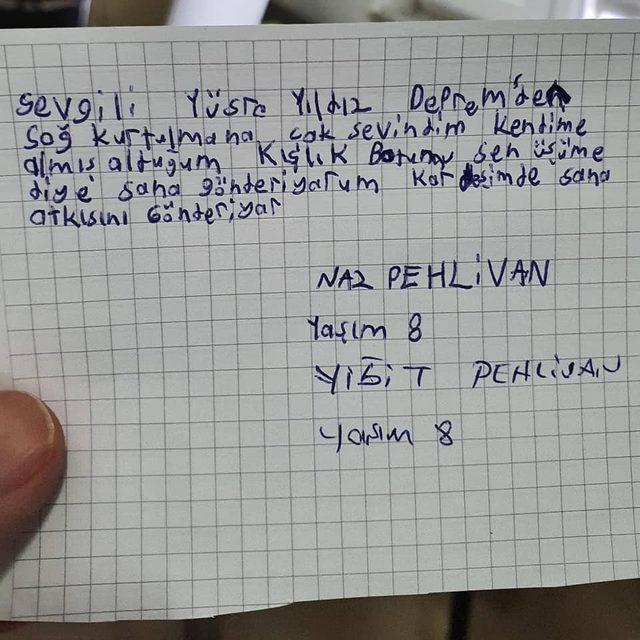 Sevgili Yüsra Yıldız Deprem'den
Sağ kurtulmana çok sevindim kendime
almış alduğum Kışlık Botumu sen üşüme
diye sana gönderiyarum kardesimde sana
atkısını Gönderiyar
NAZ PEHLİVAN
Yaşım 8
YİĞİT PEHLİVAN
Yaşım 8